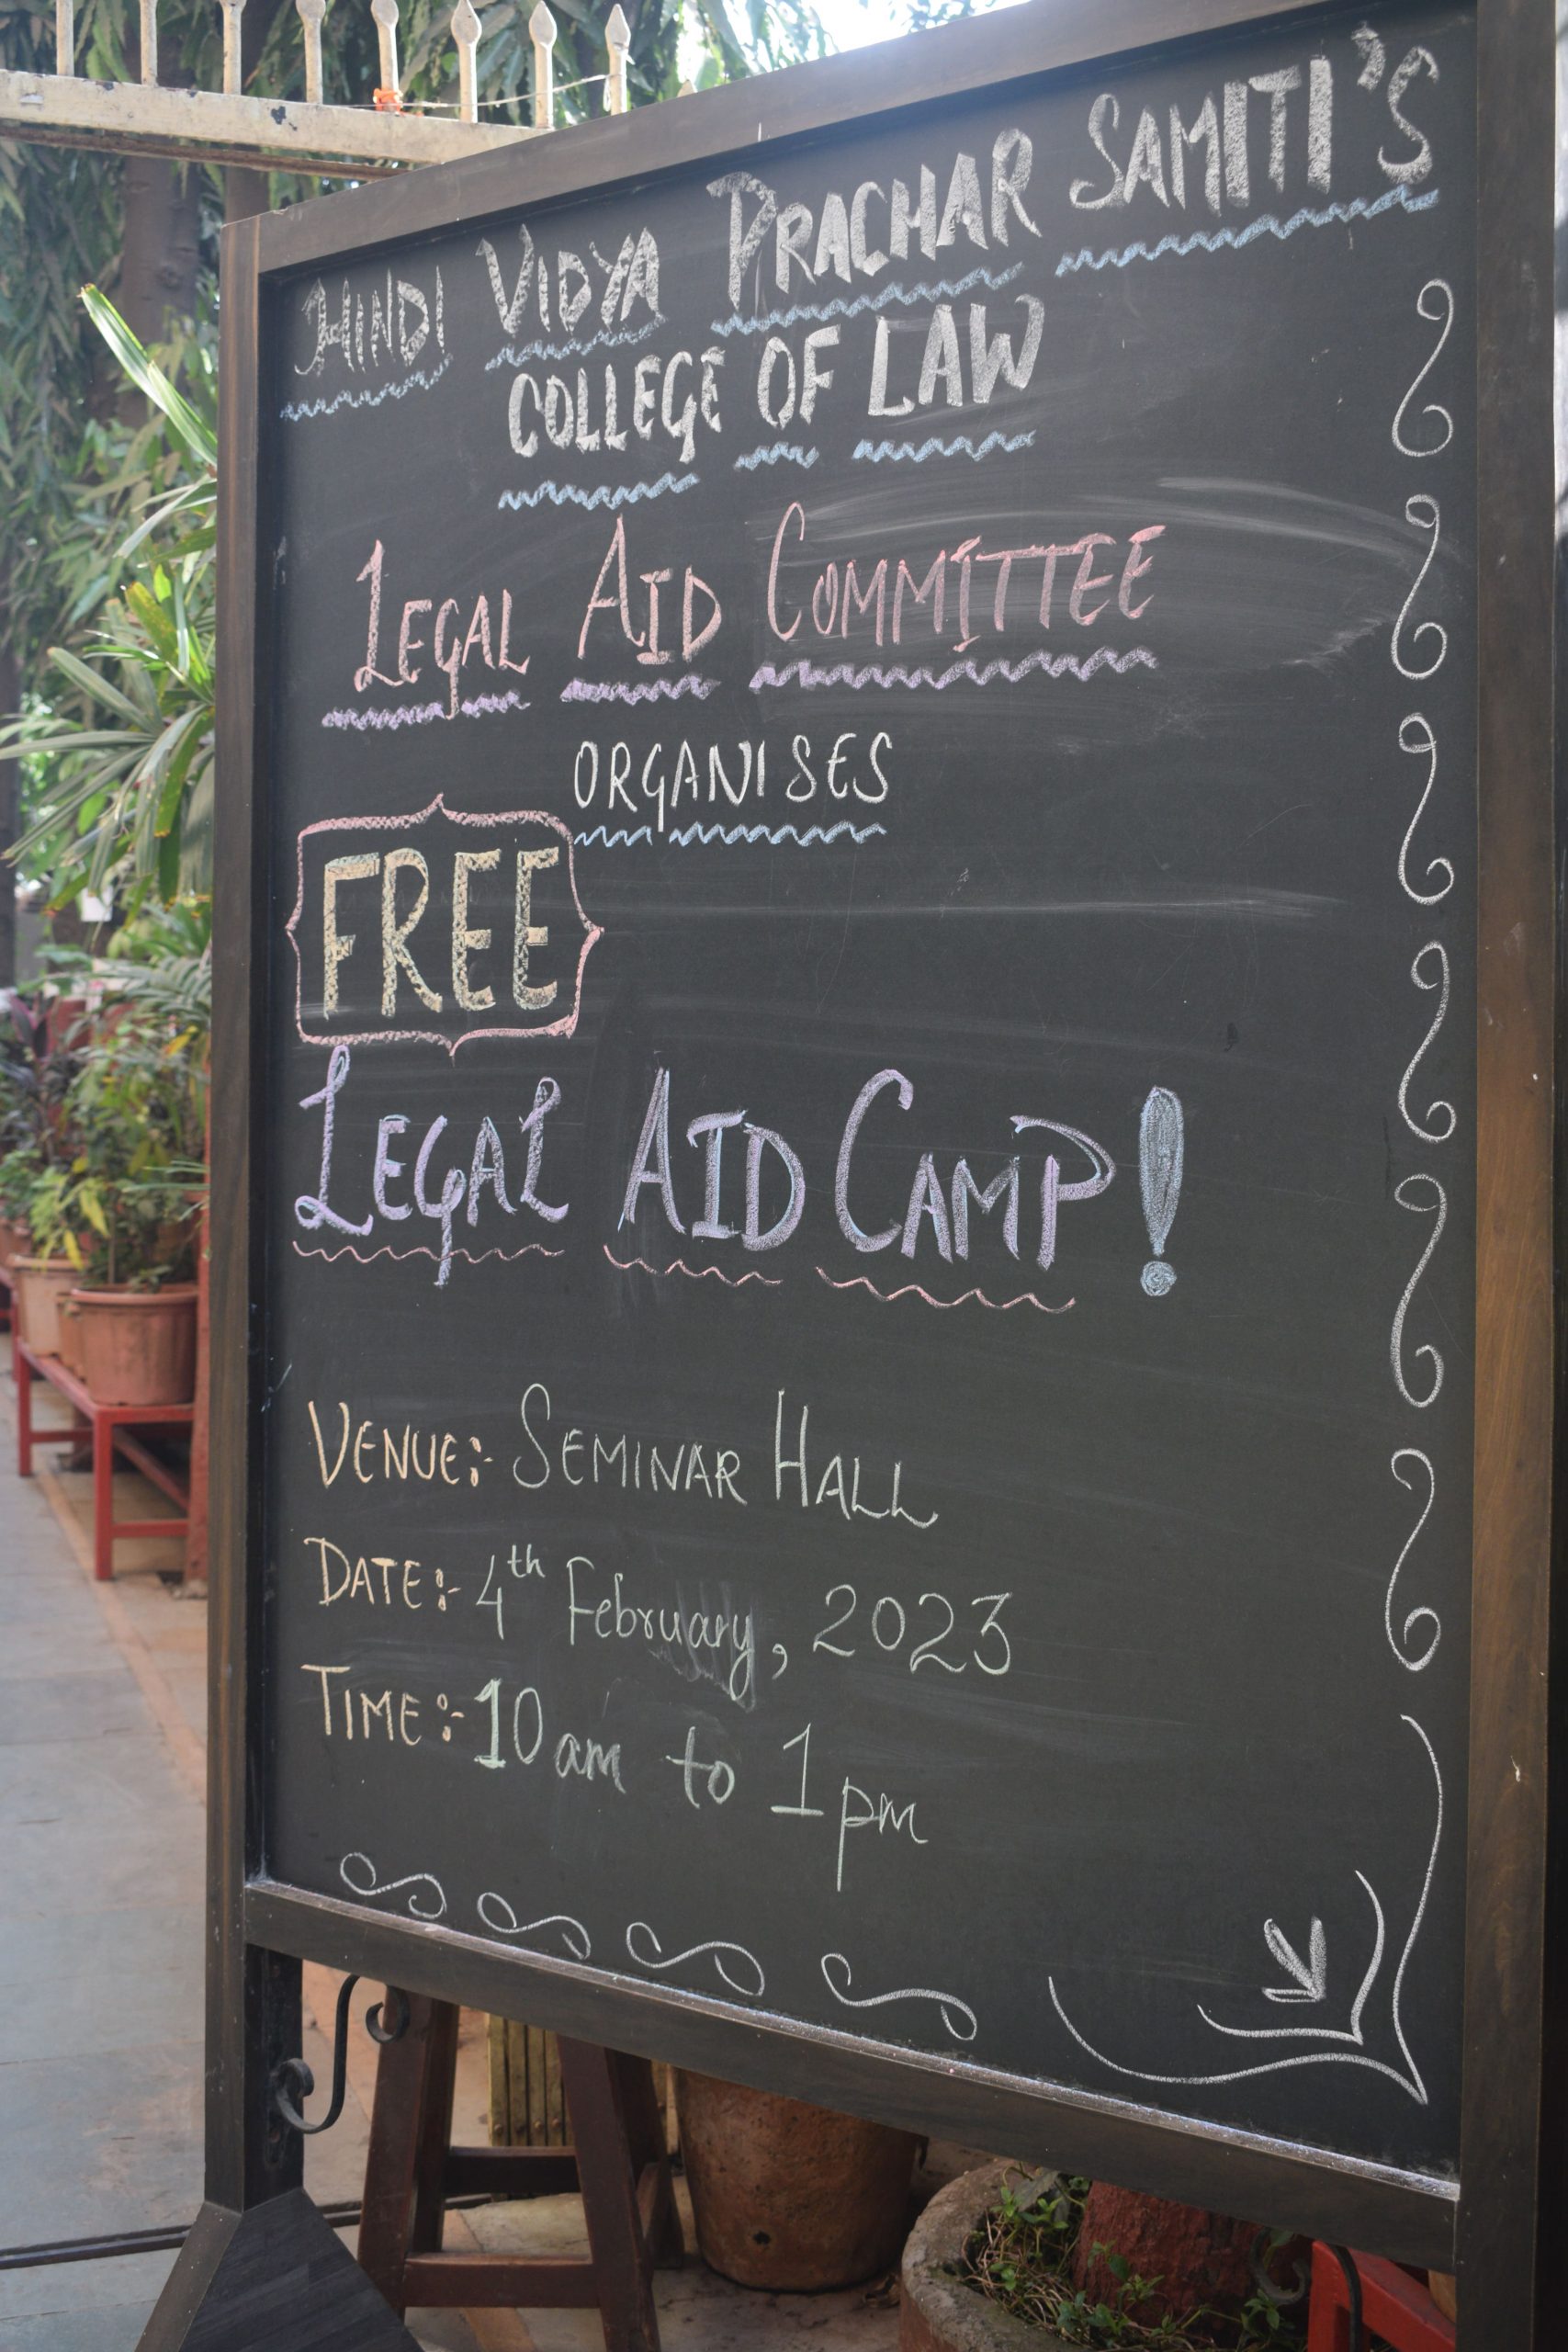 HINDI VIDYA PRACHAR SAMITI'S
COLLEGE OF LAW
LEGAL AID COMMITTEE
ORGANISES
FREE
LEGAL AID CAMP!
VENUE:- SEMINAR HALL
DATE:- 4th February, 2023
TIME:- 10 am to 1 pm